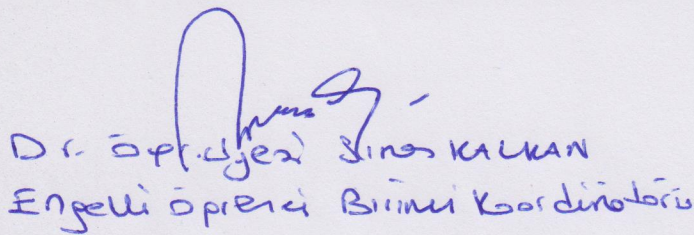 Dr. Öğr. Üyesi Sinan KALKAN
Engelli Öğrenci Birimi Koordinatörü